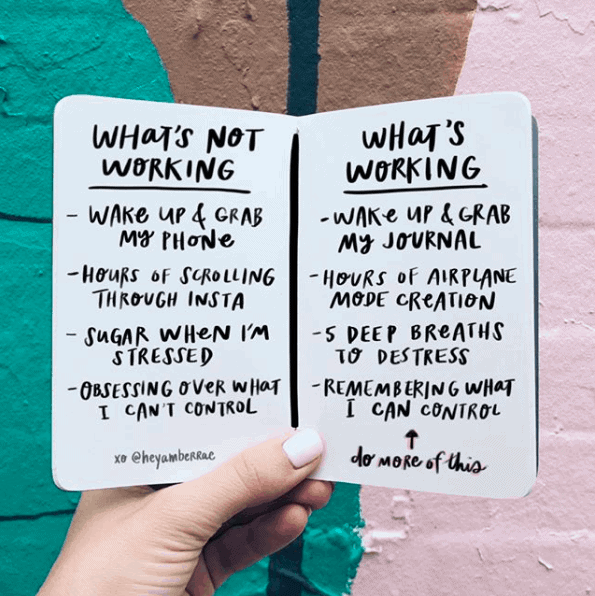 WHAT'S NOT
WORKING
- WAKE UP & GRAB
MY PHONE
- HOURS OF SCROLLING
THROUGH INSTA
- SUGAR WHEN I'M
STRESSED
- OBSESSING OVER WHAT
I CAN'T CONTROL
xo @heyamberrae
WHAT'S
WORKING
- WAKE UP & GRAB
MY JOURNAL
- HOURS OF AIRPLANE
MODE CREATION
- 5 DEEP BREATHS
TO DESTRESS
- REMEMBERING WHAT
I CAN CONTROL
do MORE of this